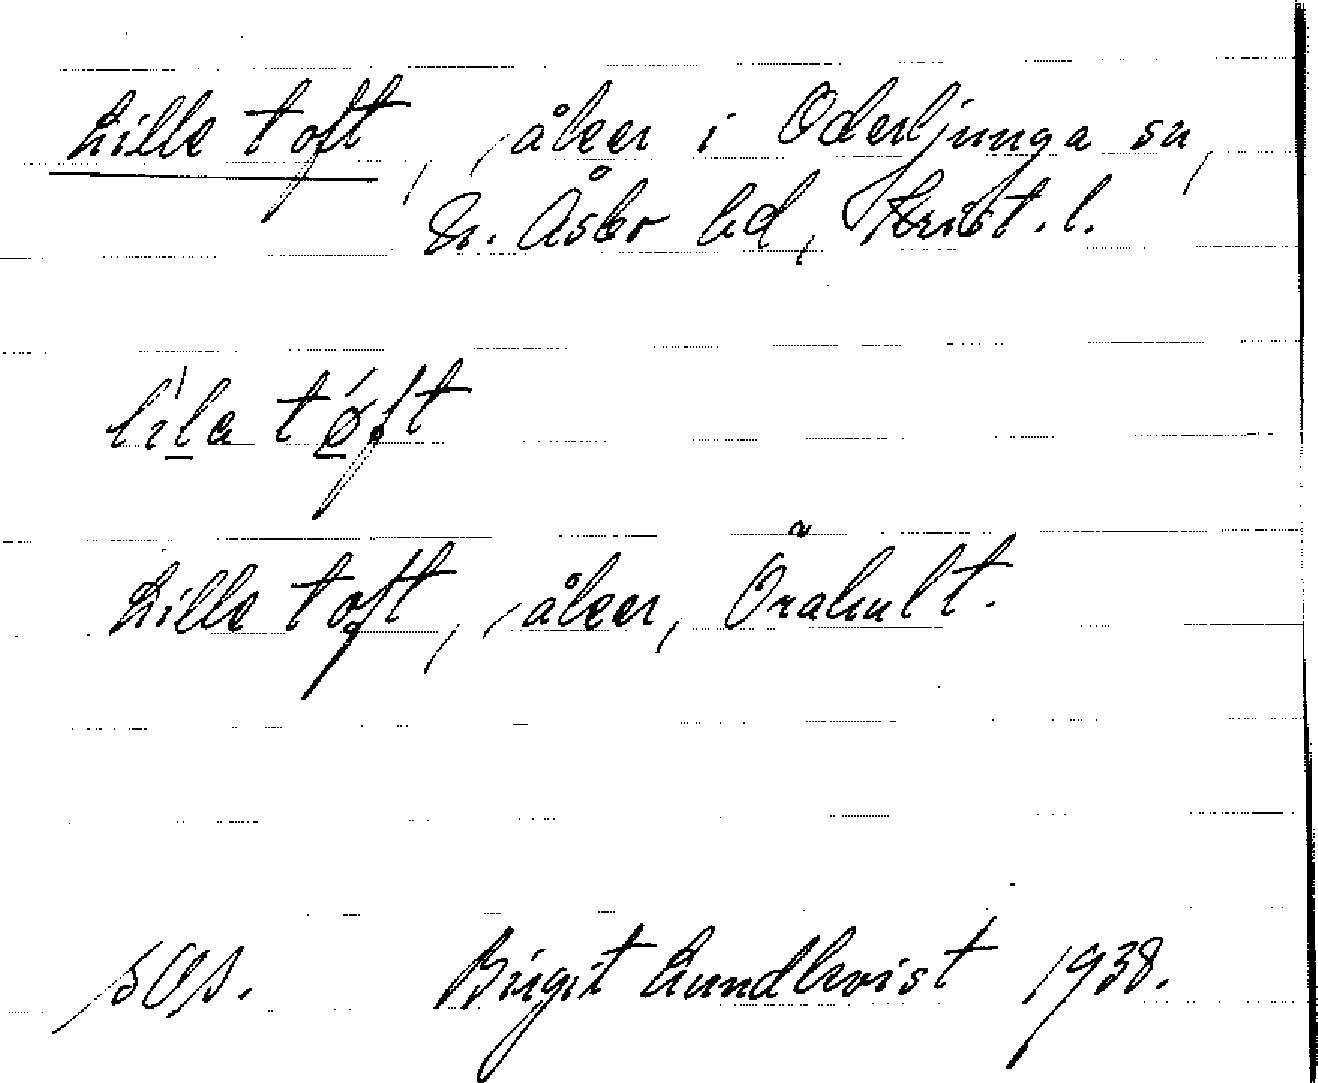 Lille toft, åker i Oderljunga sn,
N. Åsbo hd, Krist. l.
lila tøft
Lille toft, åker, Örahult.
Birgit Lundkvist 1938.